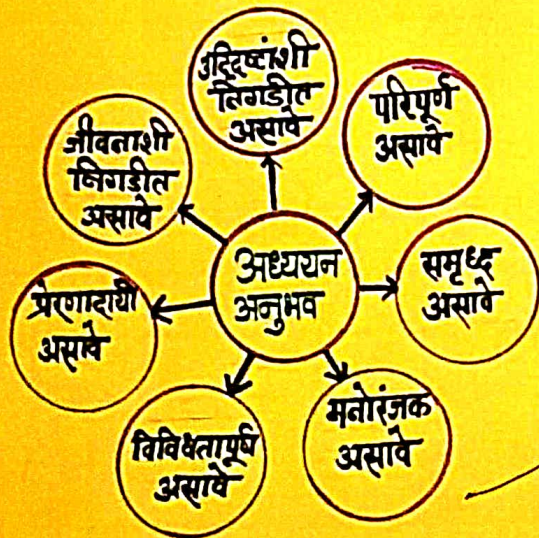 अध्ययन
अनुभव
उद्दिष्टांशी
निगडीत
असावे
परिपूर्ण
असावे
समृध्द
असावे
मनोरंजक
असावे
विविधतापूर्ण
असावे
प्रेरणादायी
असावे
जीवनाशी
निगडीत
असावे